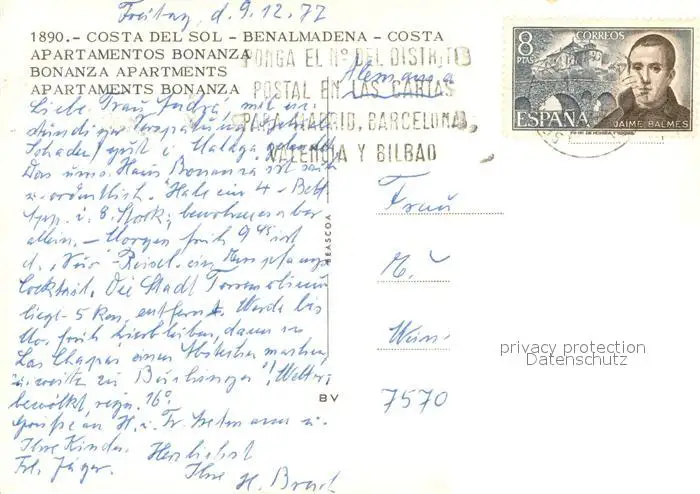 Freitag, d. 9.12.77
1890.- COSTA DEL SOL - BENALMADENA - COSTA
APARTAMENTOS BONANZA
BONANZA APARTMENTS
APARTAMENTS BONANZA
PONGA EL Nº DEL DISTRITO
POSTAL EN LAS CARTAS
PARA MADRID, BARCELONA,
VALENCIA Y BILBAO
8 PTAS
CORREOS
ESPAÑA
JAIME BALMES
Alemania
Liebe Frau André, mit
stündiger Verspätung
gut i. Malaga gelandet
Das Haus Bonanza ist
u. ordentlich. Habe ein 4-Bett
App. i. 8. Stock, bewohne es aber
allein. - Morgen früh 9 45 ist
d. Reisel. ein Empfangs
Cocktail. Die Stadt Torremolinos
liegt 5 km entfernt. Werde bis
Mo. früh hierbleiben, dann
Las Chapas einen Abstecher machen,
Wetter:
bewölkt, regn. 16°
Grüße an H. u. Fr. u.
Ihre Kinder. Herzlichst
Frl. Jäger. Ihre H.
BEASCOA
BV
Frau
7570
privacy protection
Datenschutz